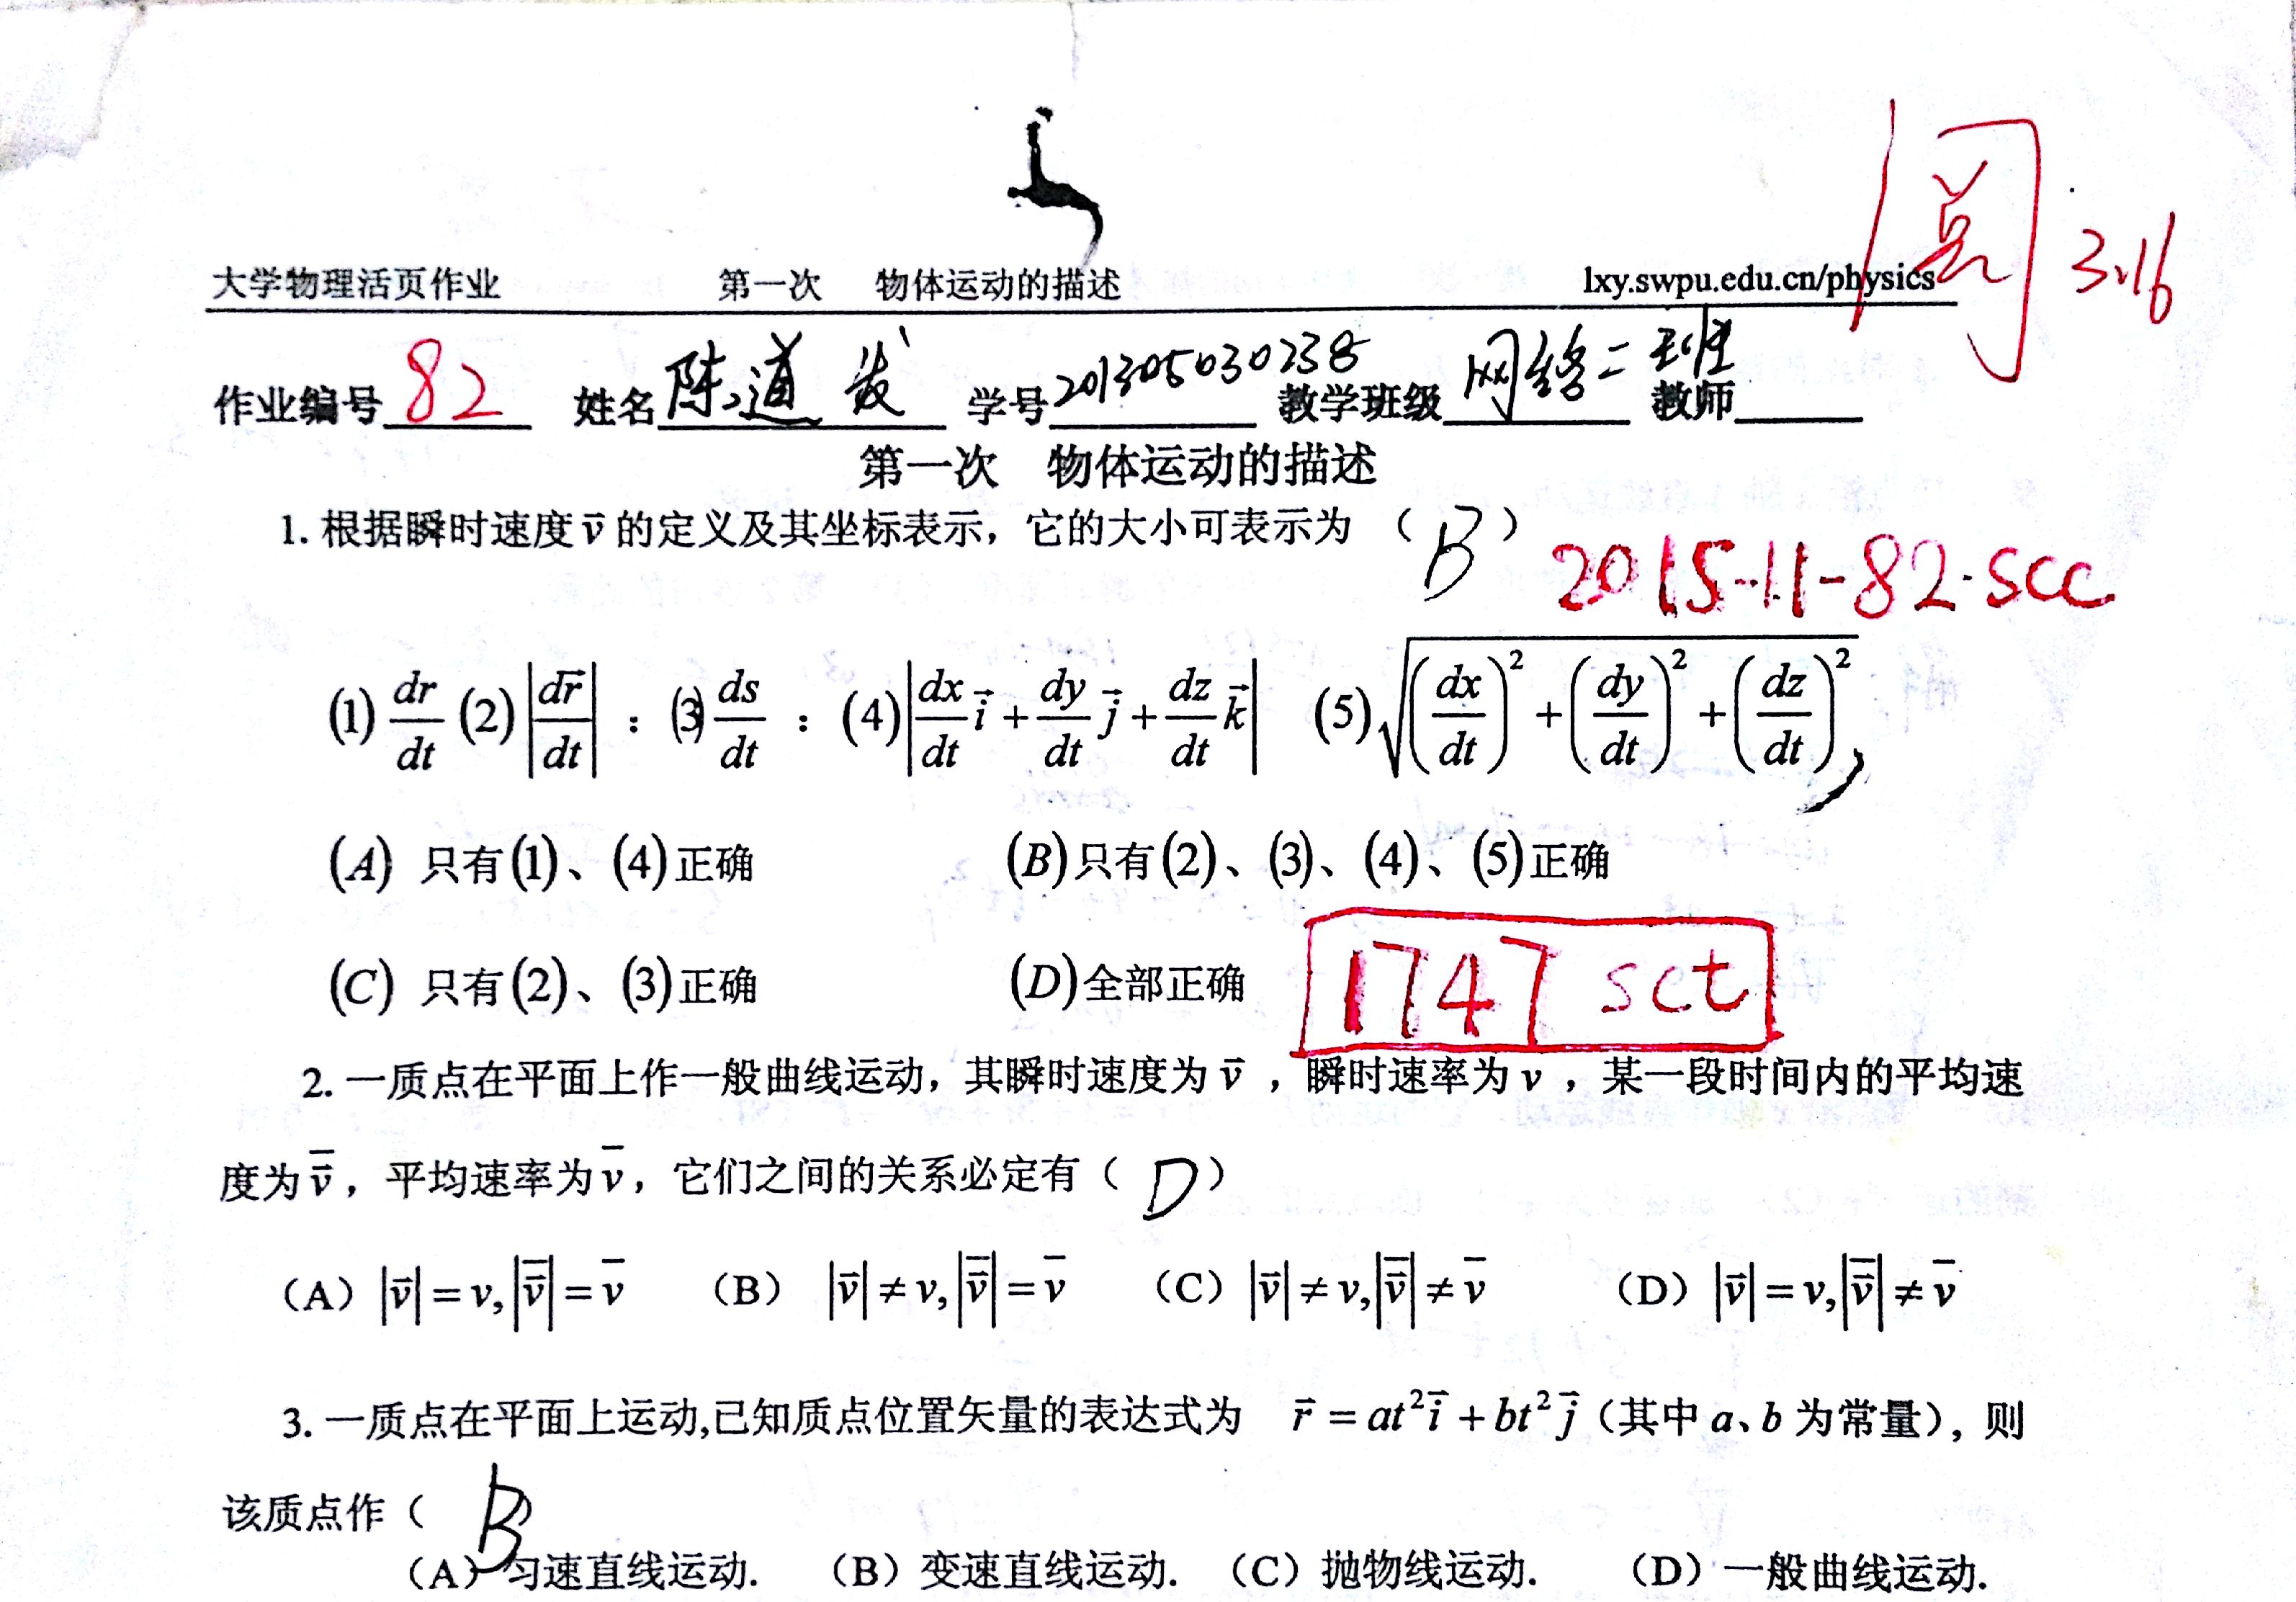 阅 3.16
大学物理活页作业 第一次 物体运动的描述 lxy.swpu.edu.cn/physics
作业编号 82 姓名 陈道发 学号 201305030238 教学班级 网络二班 教师
第一次 物体运动的描述
1. 根据瞬时速度 v⃗ 的定义及其坐标表示，它的大小可表示为 （ B ）
2015-11-82·scc
(1) dr/dt (2) |dr⃗/dt| : (3) ds/dt : (4) |dx/dt i⃗ + dy/dt j⃗ + dz/dt k⃗| (5) √((dx/dt)² + (dy/dt)² + (dz/dt)²)
(A) 只有(1)、(4)正确 (B)只有(2)、(3)、(4)、(5)正确
(C) 只有(2)、(3)正确 (D)全部正确
1747 sct
2. 一质点在平面上作一般曲线运动，其瞬时速度为 v⃗ ，瞬时速率为 v ，某一段时间内的平均速
度为 v̅⃗，平均速率为 v̅，它们之间的关系必定有（ D ）
（A）|v⃗| = v, |v̅⃗| = v̅ （B） |v⃗| ≠ v, |v̅⃗| = v̅ （C）|v⃗| ≠ v, |v̅⃗| ≠ v̅ （D）|v⃗| = v, |v̅⃗| ≠ v̅
3. 一质点在平面上运动,已知质点位置矢量的表达式为 r⃗ = at²i⃗ + bt²j⃗（其中 a、b 为常量），则
该质点作（ B
（A）匀速直线运动. （B）变速直线运动. （C）抛物线运动. （D）一般曲线运动.